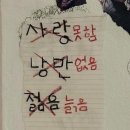 사랑못함
낭만없음
젊음늙음